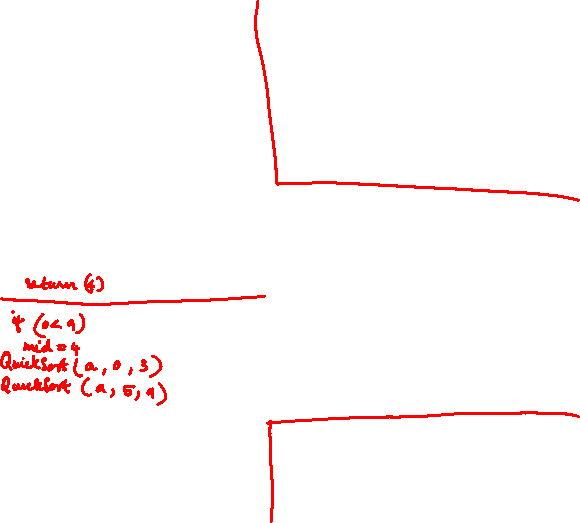 return (4)
if (0 < 9)
mid = 4
QuickSort (a, 0, 3)
QuickSort (a, 5, 9)